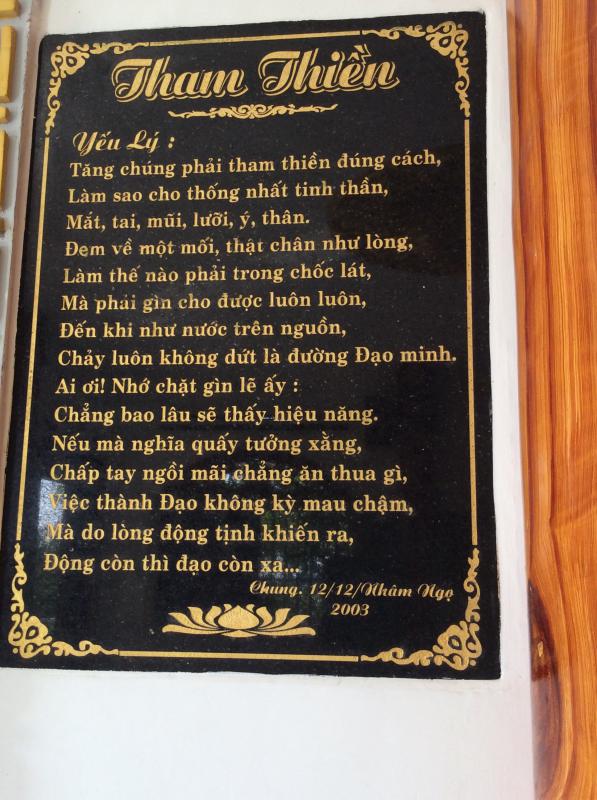 Tham Thiền
Yếu Lý :
Tăng chúng phải tham thiền đúng cách,
Làm sao cho thống nhất tinh thần,
Mắt, tai, mũi, lưỡi, ý, thân.
Đem về một mối, thật chân như lòng,
Làm thế nào phải trong chốc lát,
Mà phải gìn cho được luôn luôn,
Đến khi như nước trên nguồn,
Chảy luôn không dứt là đường Đạo minh.
Ai ơi! Nhớ chặt gìn lẽ ấy :
Chẳng bao lâu sẽ thấy hiệu năng.
Nếu mà nghĩa quấy tưởng xằng,
Chấp tay ngồi mãi chẳng ăn thua gì,
Việc thành Đạo không kỳ mau chậm,
Mà do lòng động tịnh khiến ra,
Động còn thì đạo còn xa...
Chung. 12/12/Nhâm Ngọ
2003